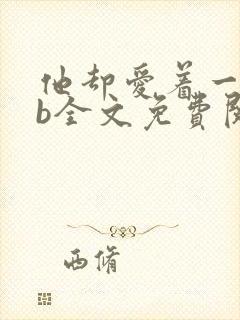 他却爱着一
b全文免費阅
西脩